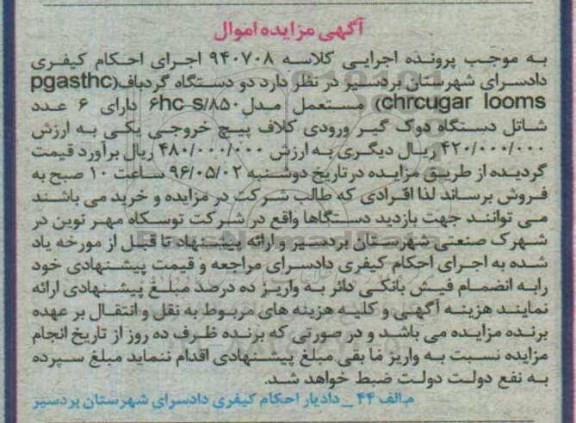 آگهی مزایده اموال
به موجب پرونده اجرایی کلاسه ۹۴۰۷۰۸ اجرای احکام کیفری
دادسرای شهرستان بردسیر در نظر دارد دو دستگاه گردباف(pgasthc
chrcugar looms) مستعمل مدل۸۵۰/hc-s۶ دارای ۶ عدد
شاتل دستگاه دوک گیر ورودی کلاف پیچ خروجی یکی به ارزش
۴۲۰/۰۰۰/۰۰۰ ریال دیگری به ارزش ۴۸۰/۰۰۰/۰۰۰ ریال برآورد قیمت
گردیده از طریق مزایده در تاریخ دوشنبه ۹۶/۰۵/۰۲ ساعت ۱۰ صبح به
فروش برساند لذا افرادی که طالب شرکت در مزایده و خرید می باشند
می توانند جهت بازدید دستگاها واقع در شرکت توسکاه مهر نوین در
شهرک صنعتی شهرستان بردسیر و ارائه پیشنهاد تا قبل از مورخه یاد
شده به اجرای احکام کیفری دادسرای مراجعه و قیمت پیشنهادی خود
رابه انضمام فیش بانکی دائر به واریز ده درصد مبلغ پیشنهادی ارائه
نمایند هزینه آگهی و کلیه هزینه های مربوط به نقل و انتقال بر عهده
برنده مزایده می باشد و در صورتی که برنده ظرف ده روز از تاریخ انجام
مزایده نسبت به واریز ما بقی مبلغ پیشنهادی اقدام ننماید مبلغ سپرده
به نفع دولت دولت ضبط خواهد شد.
م الف ۴۴ _ دادیار احکام کیفری دادسرای شهرستان بردسیر